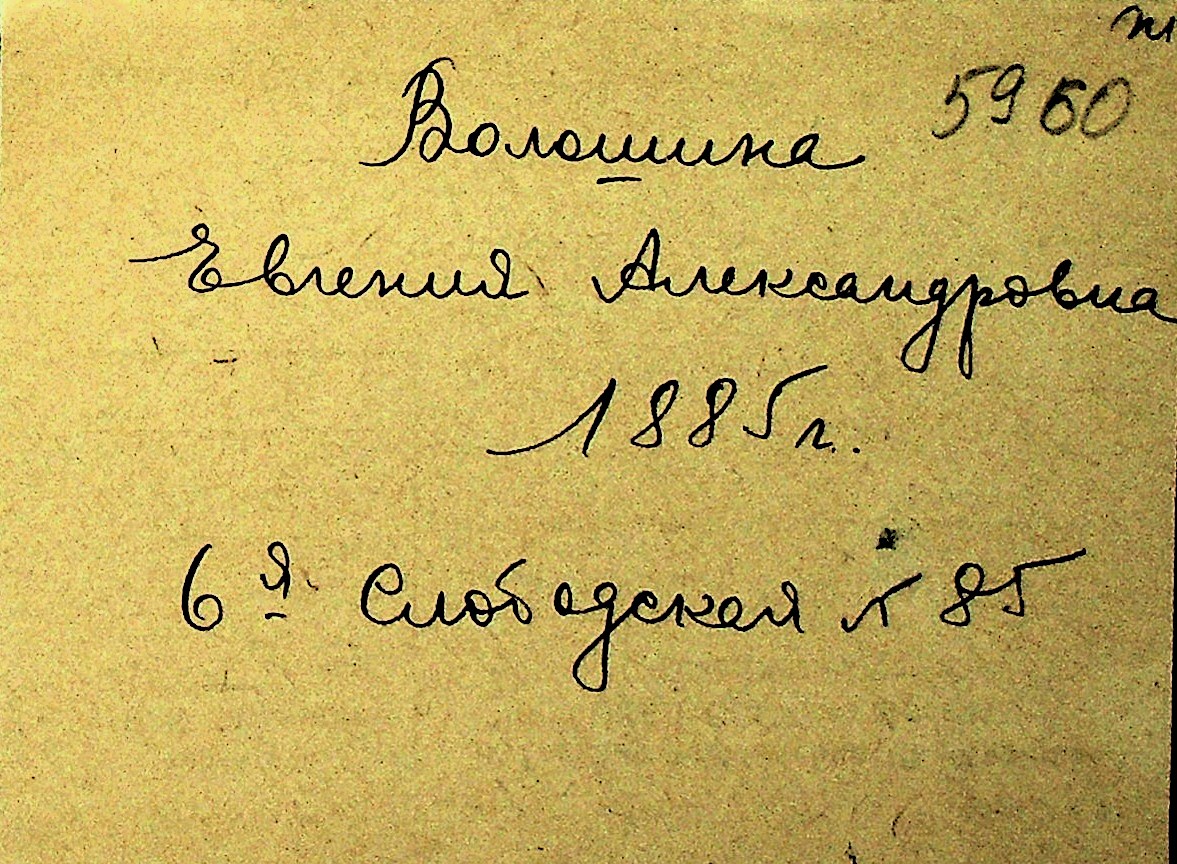 5960
Волошина
Евгения Александровна
1885 г.
6я Слободская № 85